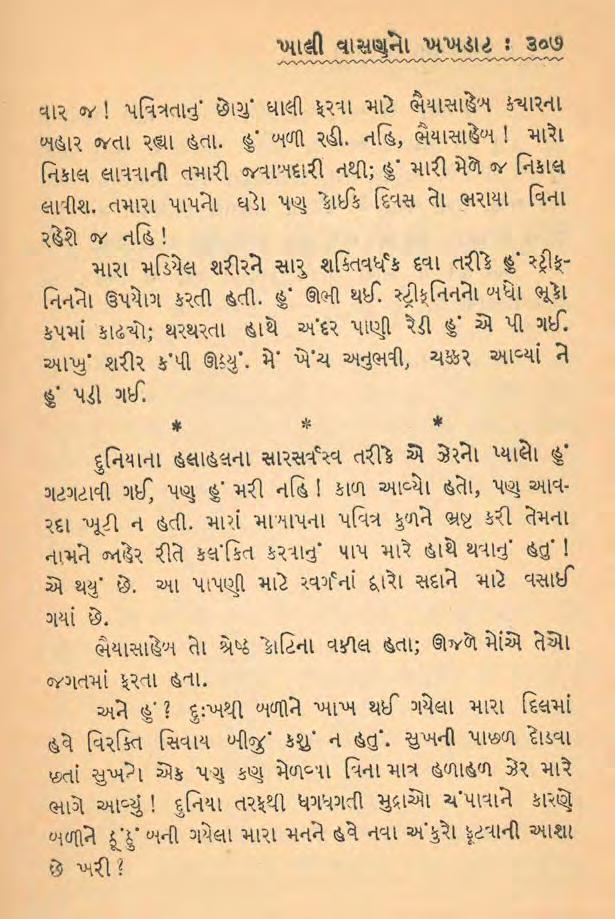 ખાલી વાસણનો ખખડાટ : ૩૦૭
વાર જ ! પવિત્રતાનું છોગું ઘાલી ફરવા માટે ભૈયાસાહેબ ક્યારના
બહાર જતા રહ્યા હતા. હું બળી રહી. નહિ, ભૈયાસાહેબ ! મારો
નિકાલ લાવવાની તમારી જવાબદારી નથી; હું મારી મેળે જ નિકાલ
લાવીશ. તમારા પાપનો ઘડો પણ કોઈક દિવસ તો ભરાયા વિના
રહેશે જ નહિ !
મારા મડિયેલ શરીરને સારુ શક્તિવર્ધક દવા તરીકે હું સ્ટ્રીક્-
નિનનો ઉપયોગ કરતી હતી. હું ઊભી થઈ. સ્ટ્રીક્નિનનો બધો ભૂકો
કપમાં કાઢ્યો; થરથરતા હાથે અંદર પાણી રેડી હું એ પી ગઈ.
આખું શરીર કંપી ઊઠ્યું. મેં ખેંચ અનુભવી, ચક્કર આવ્યાં ને
હું પડી ગઈ.
* * *
દુનિયાના હલાહલના સારસર્વસ્વ તરીકે એ ઝેરનો પ્યાલો હું
ગટગટાવી ગઈ, પણ હું મરી નહિ ! કાળ આવ્યો હતો, પણ આવ-
રદા ખૂટી ન હતી. મારાં માબાપના પવિત્ર કુળને ભ્રષ્ટ કરી તેમના
નામને જાહેર રીતે કલંકિત કરવાનું પાપ મારે હાથે થવાનું હતું !
એ થયું છે. આ પાપણી માટે સ્વર્ગનાં દ્વારો સદાને માટે વસાઈ
ગયાં છે.
ભૈયાસાહેબ તો શ્રેષ્ઠ કોટિના વકીલ હતા; ઊજળે મોંએ તેઓ
જગતમાં ફરતા હતા.
અને હું ? દુઃખથી બળીને ખાખ થઈ ગયેલા મારા દિલમાં
હવે વિરક્તિ સિવાય બીજું કશું ન હતું. સુખની પાછળ દોડવા
છતાં સુખનો એક પણ કણ મેળવ્યા વિના માત્ર હળાહળ ઝેર મારે
ભાગે આવ્યું ! દુનિયા તરફથી ધગધગતી મુદ્રાઓ ચંપાવાને કારણે
બળીને ઠૂંઠું બની ગયેલા મારા મનને હવે નવા અંકુરો ફૂટવાની આશા
છે ખરી ?